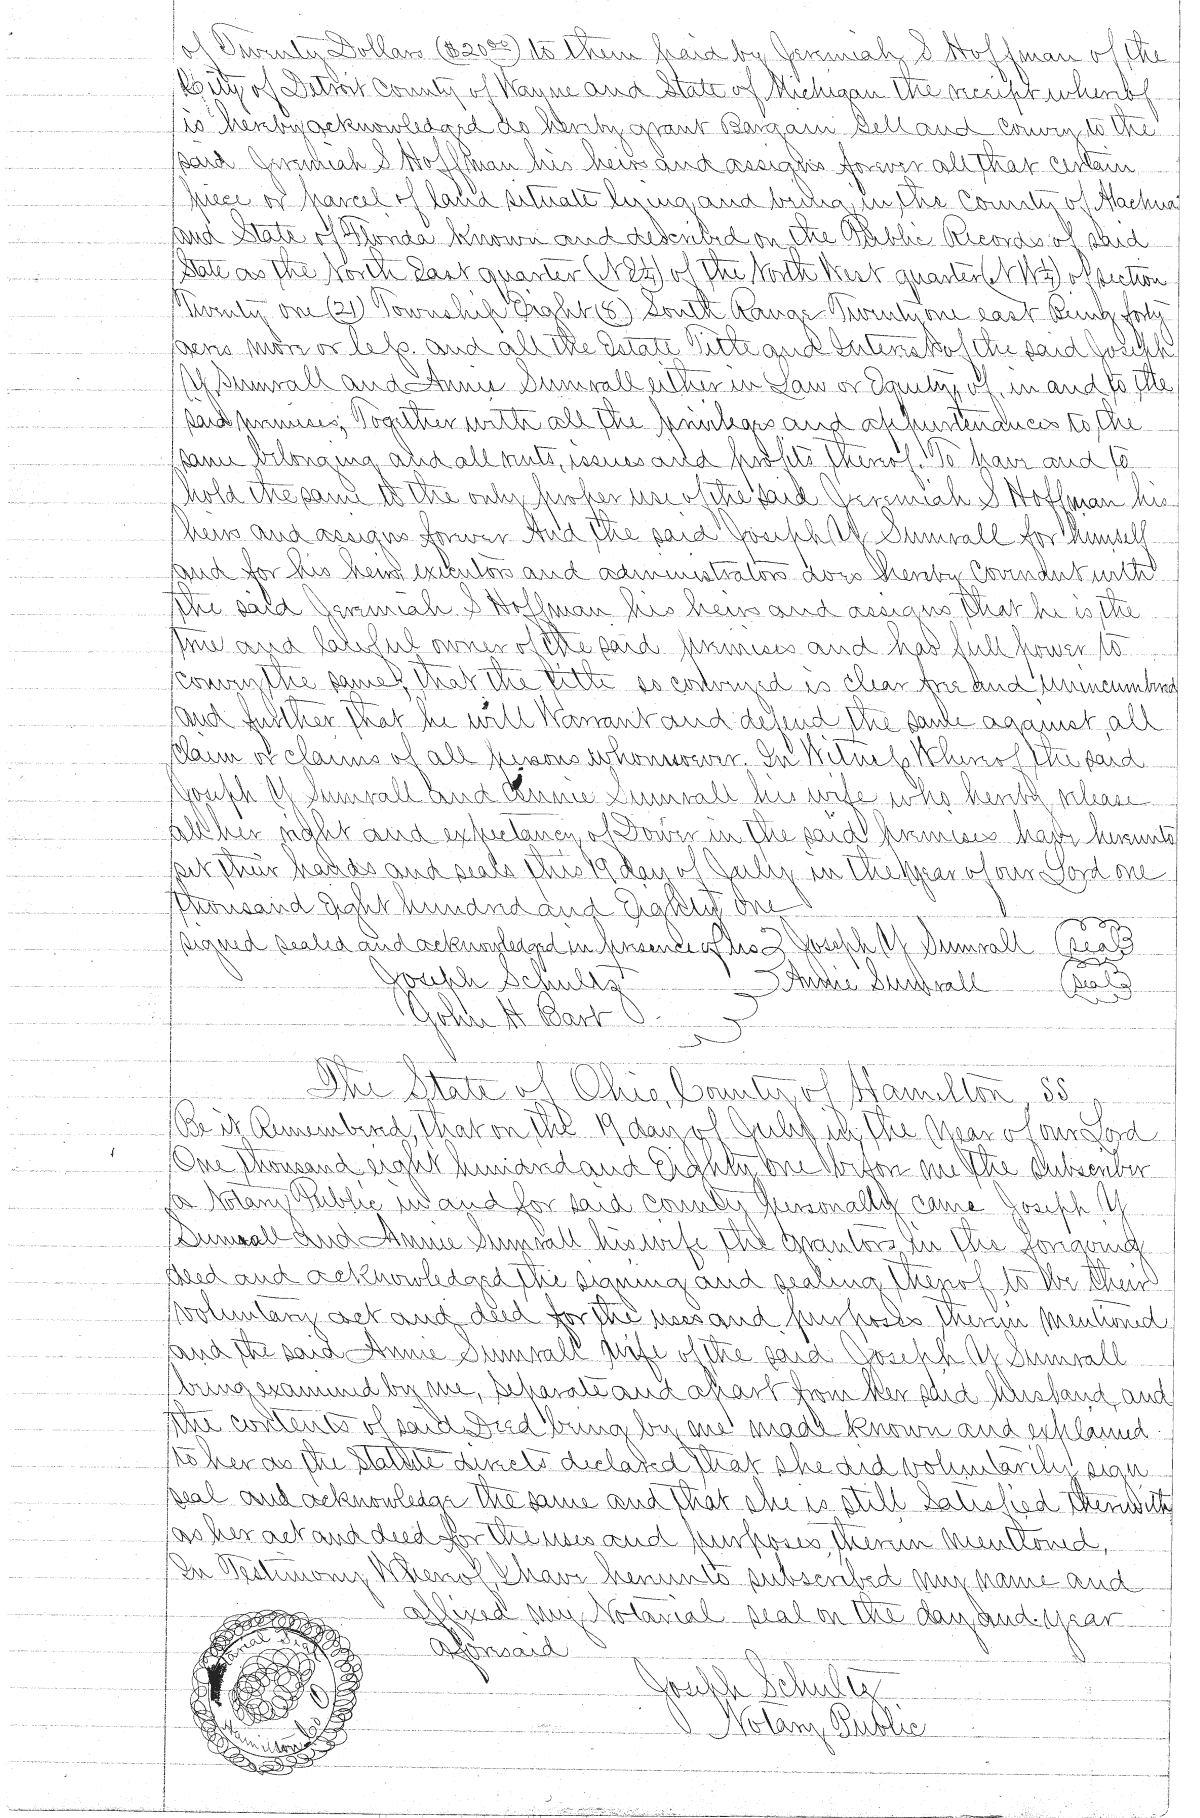 of Twenty Dollars ($20.00) to them paid by Jeremiah S Hoffman of the
City of Detroit County of Wayne and State of Michigan the receipt whereof
is hereby acknowledged do hereby grant Bargain Sell and convey to the
said Jeremiah S Hoffman his heirs and assigns forever all that certain
piece or parcel of land situate lying and being in the County of Alachua
and State of Florida known and described on the Public Records of said
State as the North East quarter (NE¼) of the North West quarter (NW¼) of section
Twenty one (21) Township Eight (8) South Range Twenty one east Being forty
acres more or less. and all the Estate Title and Interest of the said Joseph
Y Sumrall and Annie Sumrall either in Law or Equity, of, in and to the
said premises; Together with all the privileges and appurtenances to the
same belonging and all rents, issues and profits thereof. To have and to
hold the same to the only proper use of the said Jeremiah S Hoffman his
heirs and assigns forever And the said Joseph Y Sumrall for himself
and for his heirs, executors and administrators does hereby Covenant with
the said Jeremiah S Hoffman his heirs and assigns that he is the
true and lawful owner of the said premises and has full power to
convey the same, that the title so conveyed is clear free and unincumbered
and further that he will Warrant and defend the same against all
claim or claims of all persons whomsoever. In Witness Whereof the said
Joseph Y Sumrall and Annie Sumrall his wife who hereby release
all her right and expectancy of Dower in the said premises have hereunto
set their hands and seals this 19 day of July in the Year of our Lord one
thousand Eight hundred and Eighty one
signed sealed and acknowledged in presence of us Joseph Y Sumrall (seal)
Joseph Schultz Annie Sumrall (seal)
John H Bart
The State of Ohio, County of Hamilton, SS
Be it Remembered, that on the 19 day of July in the Year of our Lord
One thousand eight hundred and Eighty one before me the subscriber
a Notary Public in and for said county personally came Joseph Y
Sumrall and Annie Sumrall his wife the grantors in the foregoing
deed and acknowledged the signing and sealing thereof to be their
voluntary act and deed for the uses and purposes therein mentioned
and the said Annie Sumrall wife of the said Joseph Y Sumrall
being examined by me, separate and apart from her said husband, and
the contents of said Deed being by me made known and explained
to her as the Statute directs declared that she did voluntarily sign
seal and acknowledge the same and that she is still satisfied therewith
as her act and deed for the uses and purposes therein mentioned,
In Testimony Whereof, I have hereunto subscribed my name and
affixed my Notarial seal on the day and year
aforesaid
Notarial Seal
Hamilton Co O
Joseph Schultz
Notary Public